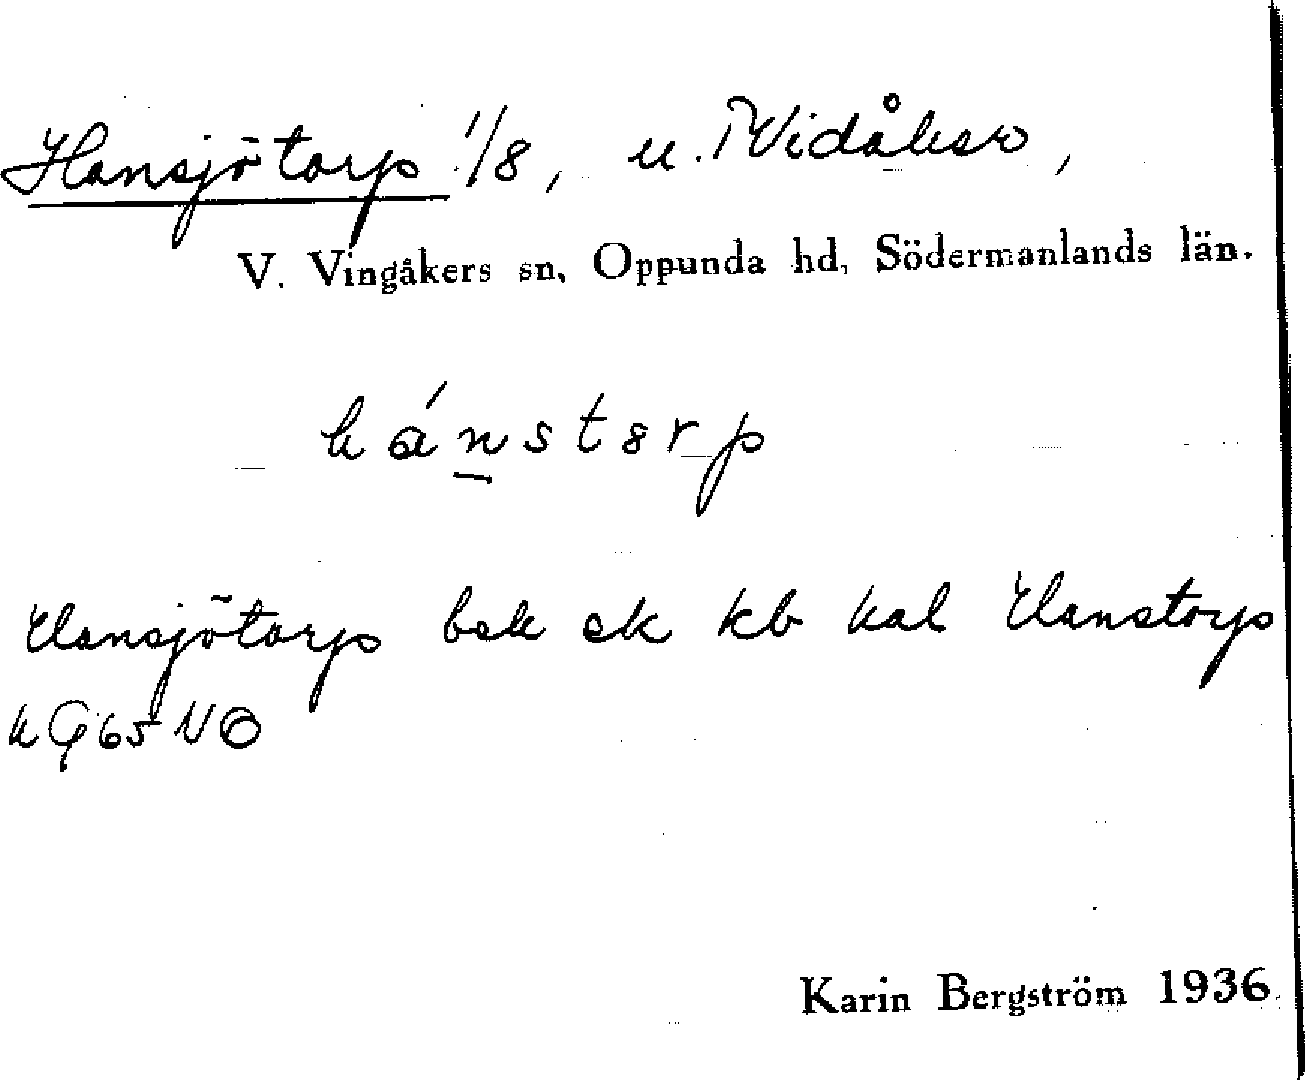 Hansjötorp 1/8, u. Vidåker,
V. Vingåkers sn, Oppunda hd, Södermanlands län.
hánstɜrp
Hansjötorp bek ek kb kal Hanstorp
k G 65 NO
Karin Bergström 1936